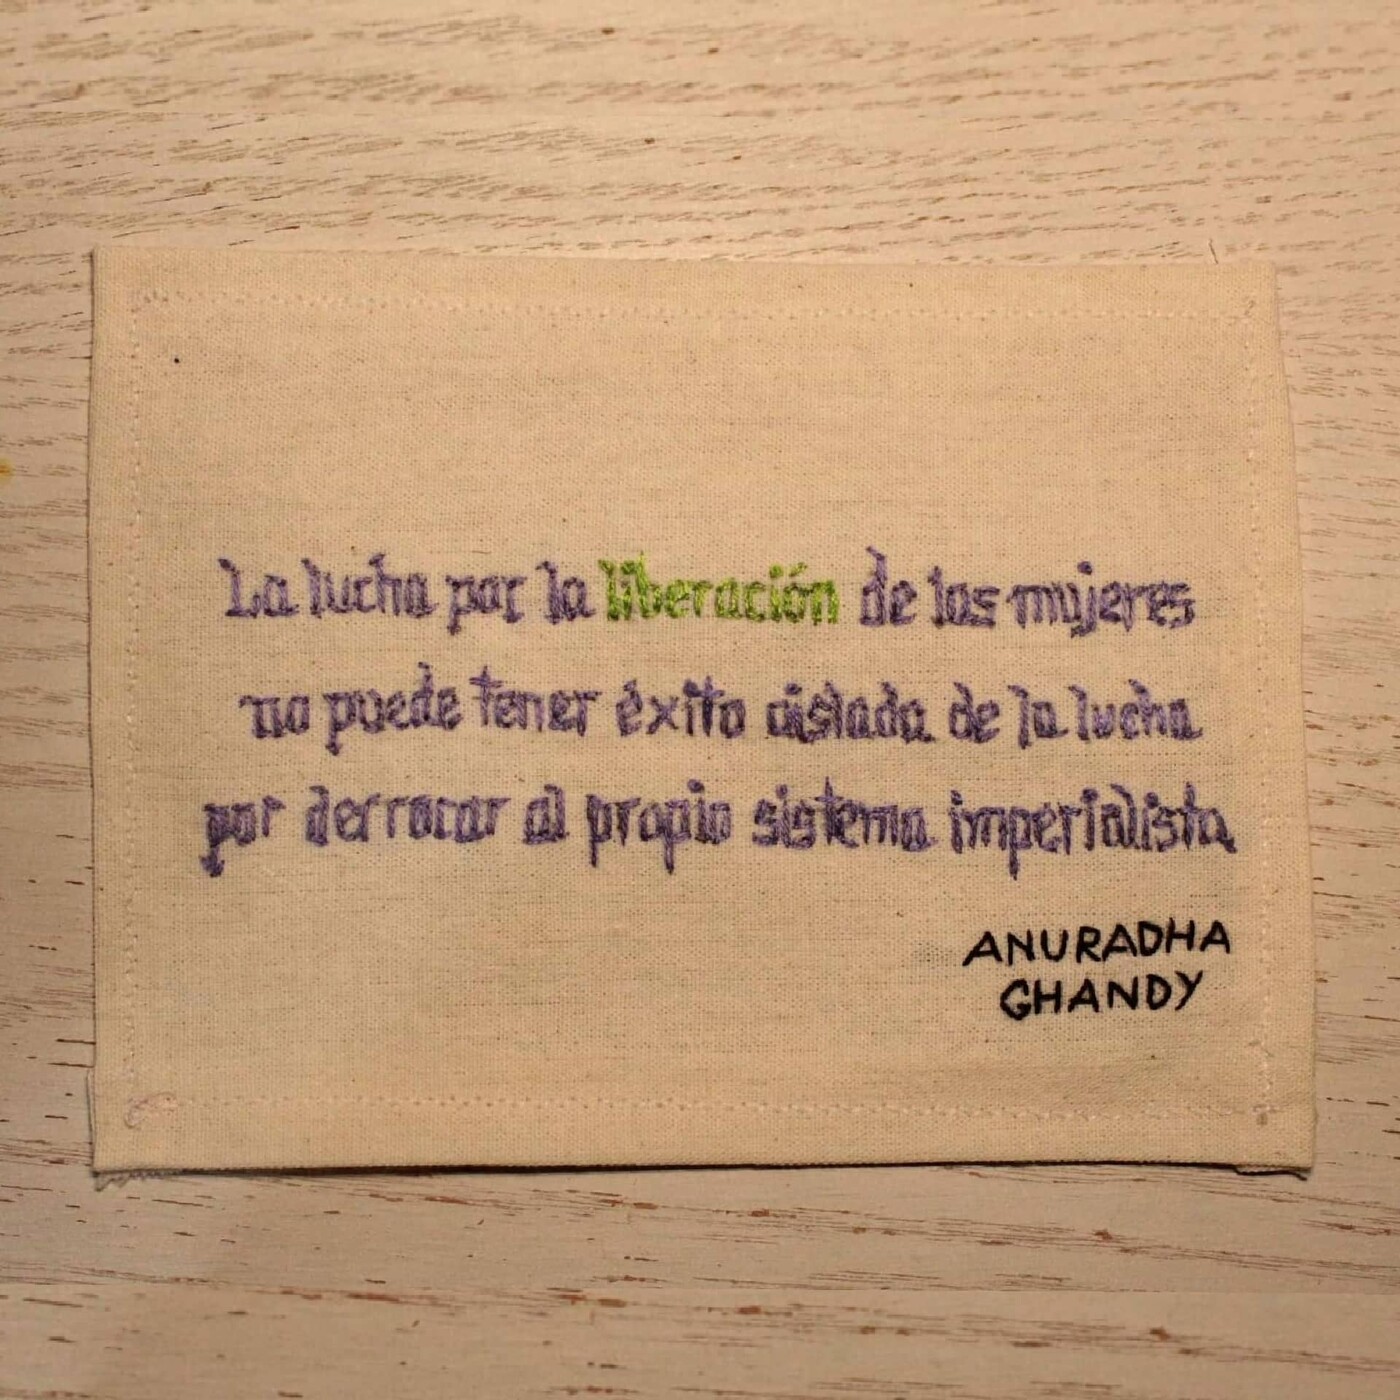 La lucha por la liberación de las mujeres
no puede tener éxito aislada de la lucha
por derrocar al propio sistema imperialista
ANURADHA
GHANDY